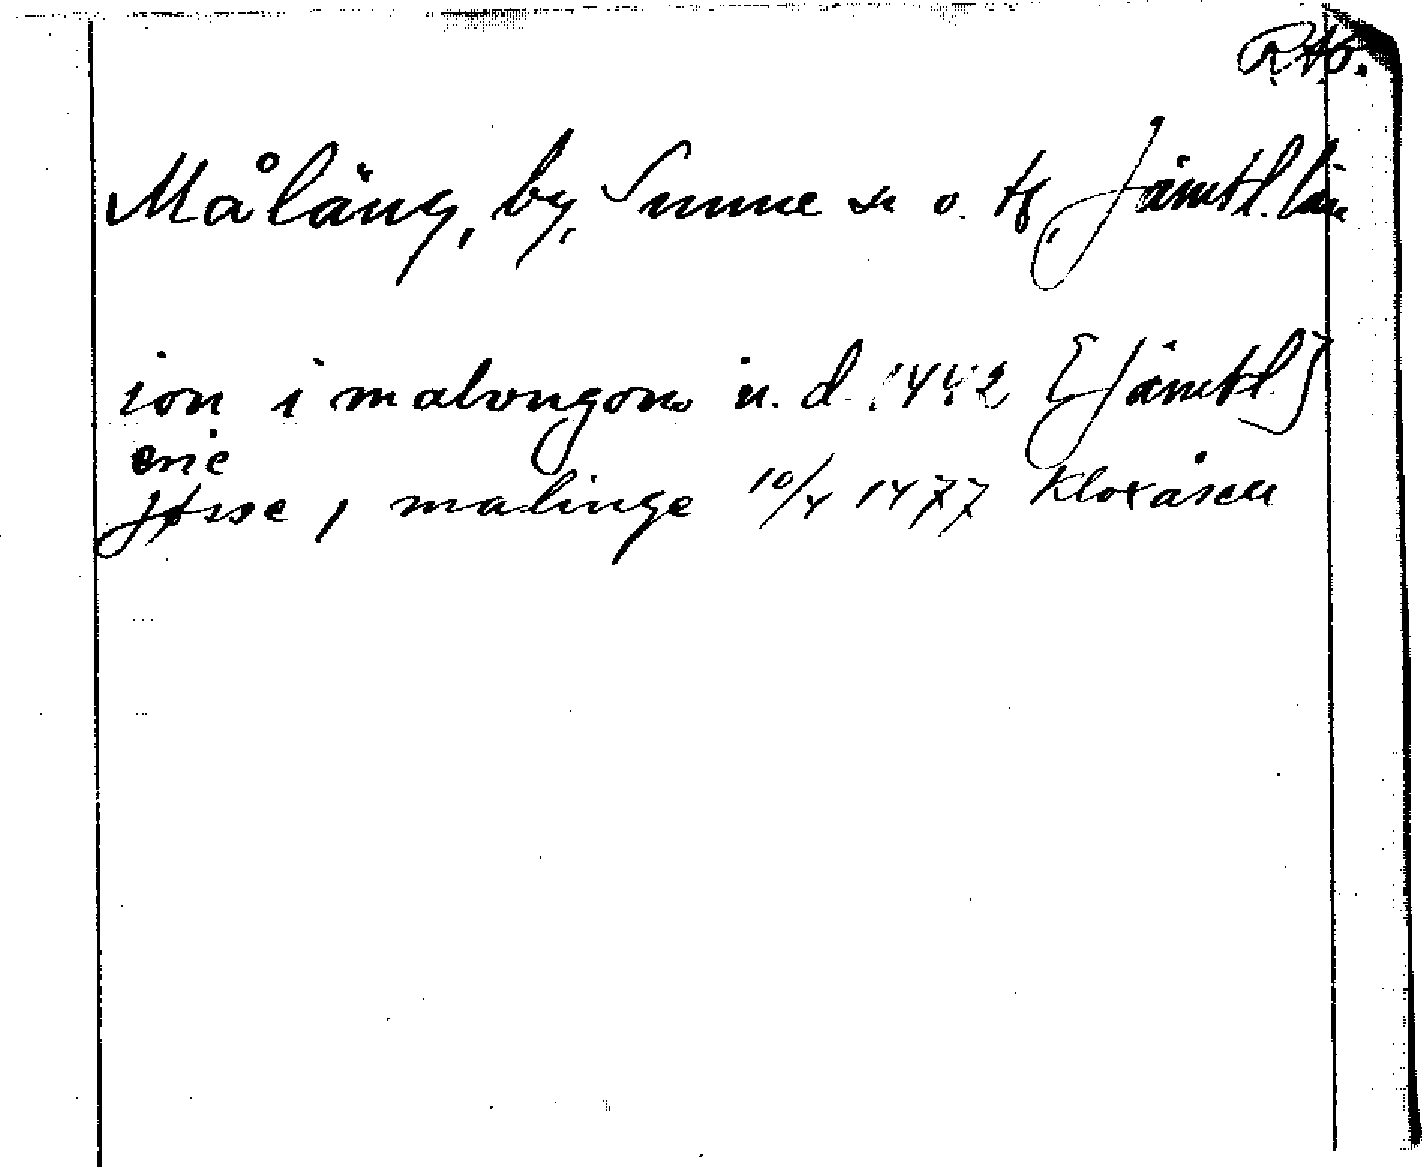 RAp.
Måläng, by, Sunne sn o. tg, Jämtl. län
ion i malvngom u. d. 1442 [Jämtl]
eric
Jssse i malinge 10/4 1477 Kloxåsen